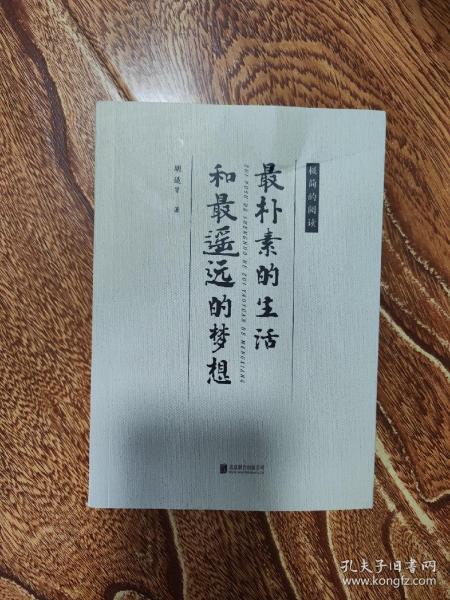 极简的阅读
最朴素的生活
ZUI PUSU DE SHENGHUO HE ZUI YAOYUAN DE MENGXIANG
和最遥远的梦想
胡适等 著
北京联合出版公司
孔夫子旧书网
www.kongfz.com